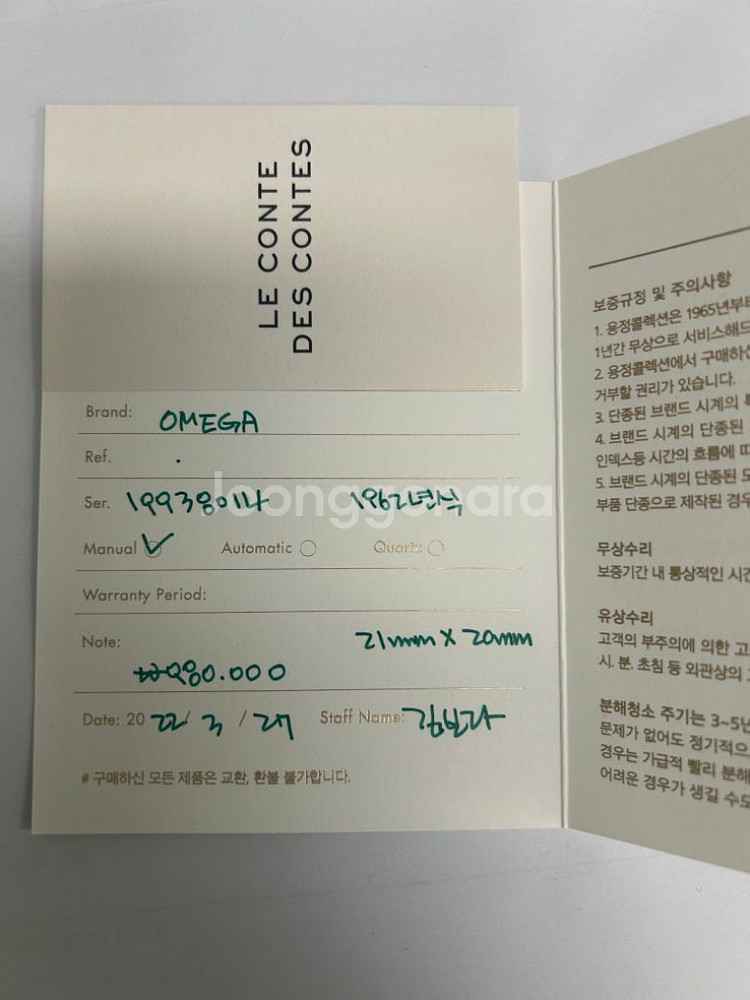 LE CONTE
DES CONTES
Brand: OMEGA
Ref. .
Ser. 1962년식
joonggonara
Manual ✓ Automatic ○ Quartz ○
Warranty Period:
Note: 21mm X 20mm
₩980.000
Date: 20 22 / 3 / Staff Name: 김보라
# 구매하신 모든 제품은 교환, 환불 불가합니다.
보증규정 및 주의사항
1. 용정콜렉션은 1965년부터
1년간 무상으로 서비스해드
2. 용정콜렉션에서 구매하신
거부할 권리가 있습니다.
3. 단종된 브랜드 시계의
4. 브랜드 시계의 단종된
인덱스등 시간의 흐름에 따
5. 브랜드 시계의 단종된
부품 단종으로 제작된 경우
무상수리
보증기간 내 통상적인 시간
유상수리
고객의 부주의에 의한 고
시. 분. 초침 등 외관상의
분해청소 주기는 3~5년
문제가 없어도 정기적으
경우는 가급적 빨리 분해
어려운 경우가 생길 수도